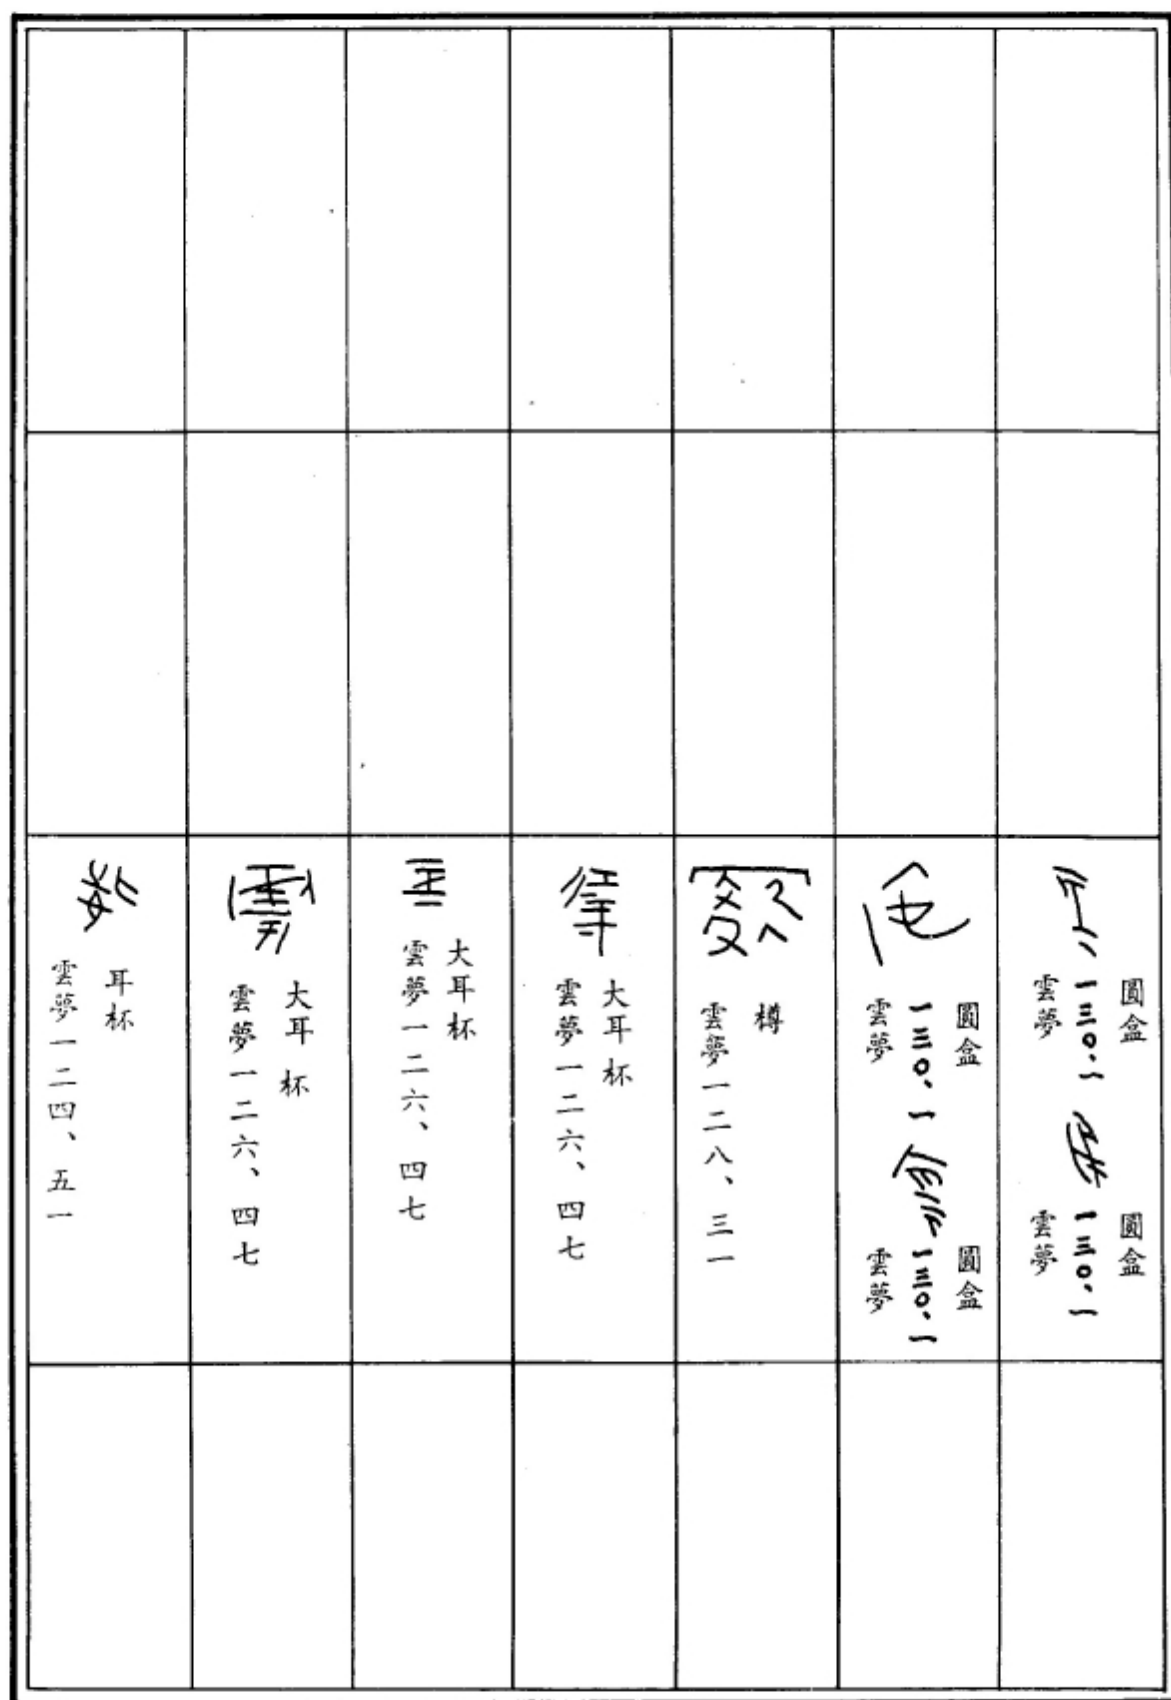 圓盒
雲夢一三〇·一
圓盒
雲夢一三〇·一
圓盒
雲夢一三〇·一
圓盒
雲夢一三〇·一
樽
雲夢一二八、三一
大耳杯
雲夢一二六、四七
大耳杯
雲夢一二六、四七
大耳杯
雲夢一二六、四七
耳杯
雲夢一二四、五一